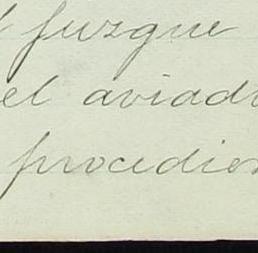 juzgue
el aviad
procedie